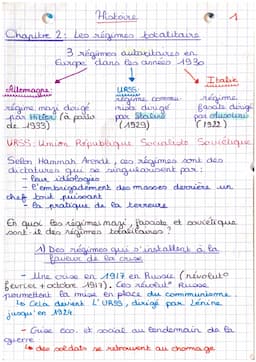 Histoire
1
Chapitre 2: Les régimes totalitaires
3 régimes autoritaires en
Europe dans les années 1930
Allemagne:
régime nazi dirigé
par Hitler (à partir
de 1933)
URSS:
régime commu-
niste dirigé
par Staline
(1929)
Italie
régime
fasciste dirigé
par Mussolini
(1922)
URSS: Union République Socialiste Soviétique
Selon Hannah Arendt, ces régimes sont des
dictatures qui se singularisent par:
- leur idéologies
- l'embrigadement des masses derrière un
chef tout puissant
- la pratique de la terreur
En quoi les régimes nazi, fasciste et soviétique
sont-il des régimes totalitaires ?
1) Des régimes qui s'installent à la
faveur de la crise
- Une crise en 1917 en Russie (révolut°
février + octobre 1917). Ces révolut° Russe
permettent la mise en place du communisme.
↳ Cela devient l'URSS, dirigé par Lénine
jusqu'en 1924
- Crise eco. et social au lendemain de la
guerre
↳ des soldats se retrouvent au chomage